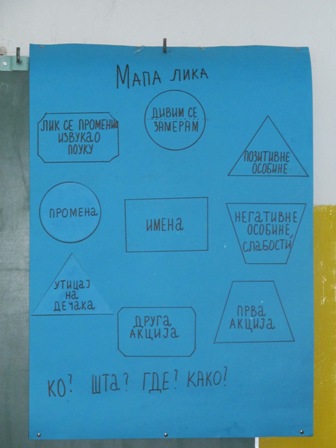 МАПА ЛИКА
ЛИК СЕ ПРОМЕНИ
ИЗВУКАО
ПОУКУ
ДИВИМ СЕ
ЗАМЕРАМ
ПОЗИТИВНЕ
ОСОБИНЕ
ПРОМЕНА
ИМЕНА
НЕГАТИВНЕ
ОСОБИНЕ,
СЛАБОСТИ
УТИЦАЈ
НА
ДЕЧАКА
ДРУГА
АКЦИЈА
ПРВА
АКЦИЈА
КО? ШТА? ГДЕ? КАКО?